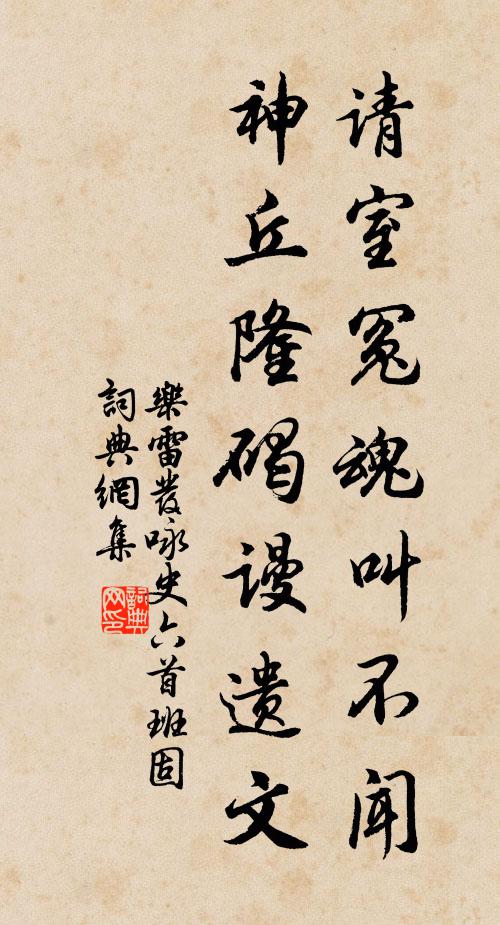 请室冤魂叫不闻
神丘隆碣谩遗文
樂雷發咏史六首班固
詞典網集
詞典网印